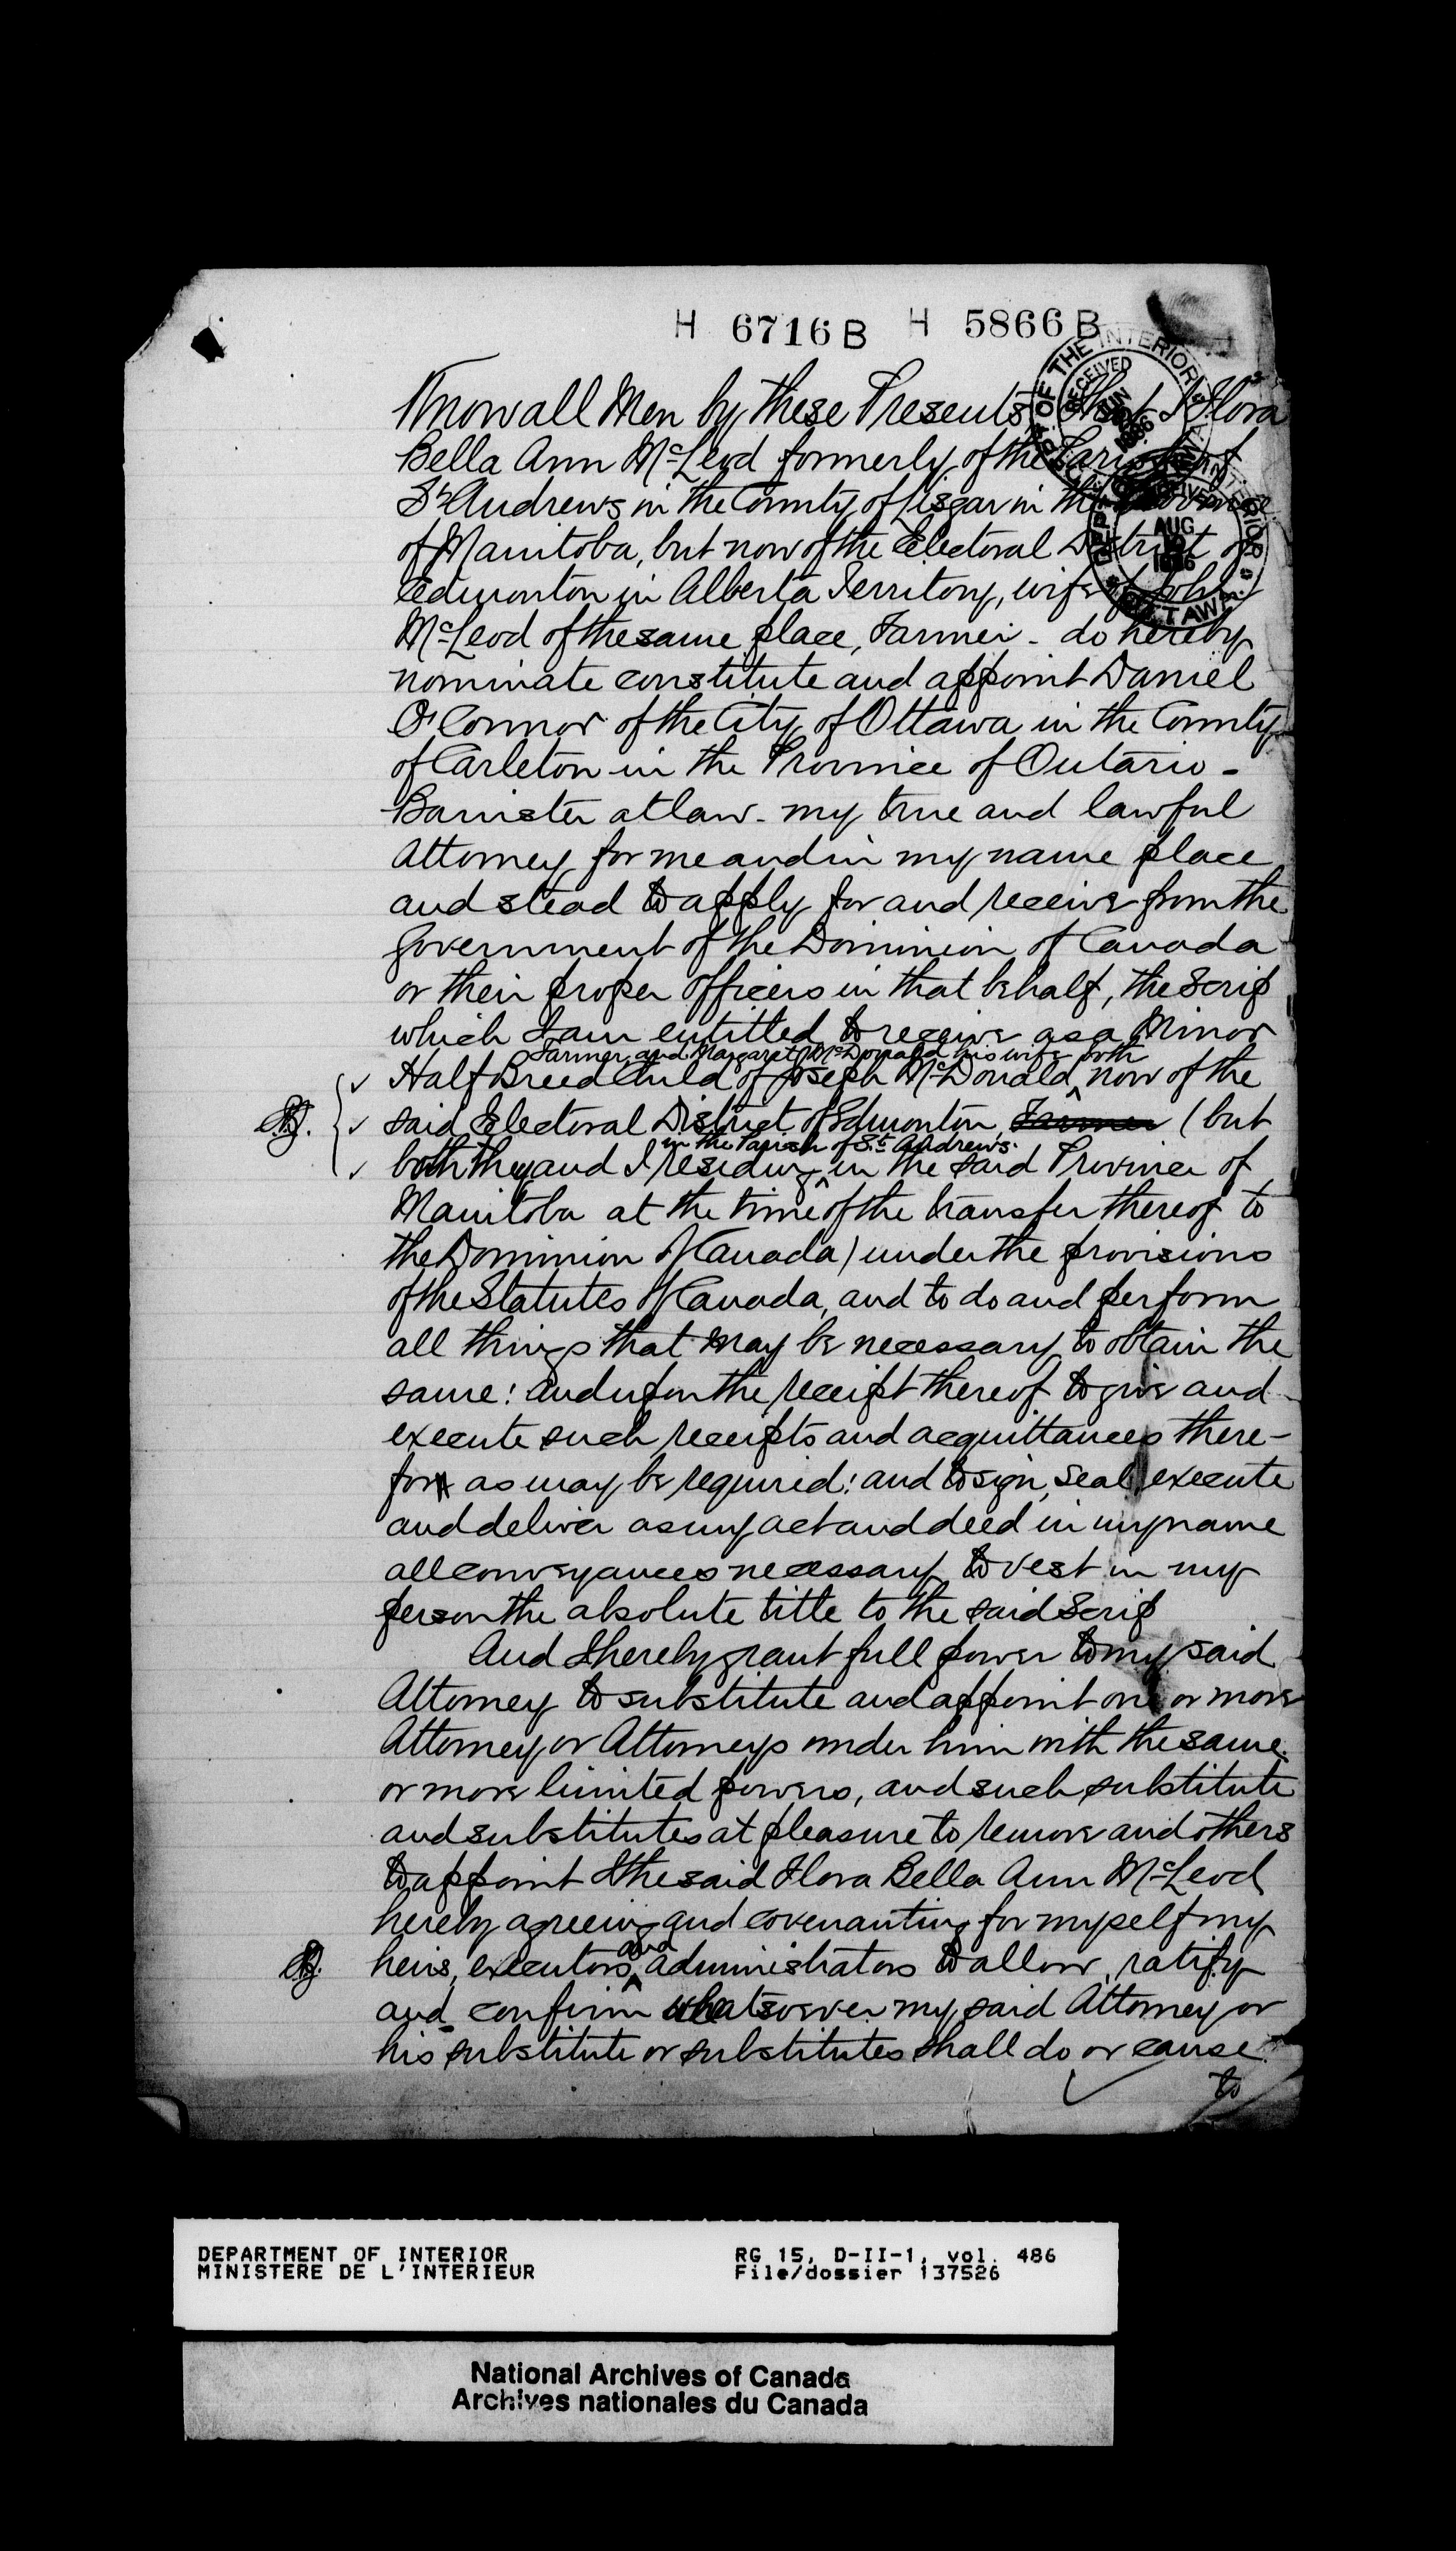 H 6716 B H 5866 B
DEPT. OF THE INTERIOR
RECEIVED
JUN
1886
OTTAWA
DEPT. OF THE INTERIOR
AUG
19
1886
OTTAWA
Know all Men by these Presents That I Flora
Bella Ann McLeod formerly of the Parish of
St Andrews in the County of Lisgar in the Province
of Manitoba, but now of the Electoral District of
Edmonton in Alberta Territory, wife of John
McLeod of the same place, Farmer - do hereby
nominate constitute and appoint Daniel
O'Connor of the City of Ottawa in the County
of Carleton in the Province of Ontario -
Barrister at law - my true and lawful
Attorney for me and in my name place
and stead to apply for and receive from the
Government of the Dominion of Canada
or their proper officers in that behalf, the Scrip
which I am entitled to receive as a Minor
Farmer and Margaret McDonald his wife both
Half Breed Child of Joseph McDonald now of the
said Electoral District of Edmonton, Farmer (but
in the Parish of St. Andrews.
both they and I residing in the said Province of
Manitoba at the time of the transfer thereof to
the Dominion of Canada) under the provisions
of the Statutes of Canada, and to do and perform
all things that may be necessary to obtain the
same: and upon the receipt thereof to give and
execute such receipts and acquittances there-
for as may be required: and to sign, seal, execute
and deliver as my act and deed in my name
all conveyances necessary to vest in my
person the absolute title to the said Scrip
And I hereby grant full power to my said
Attorney to substitute and appoint one or more
Attorney or Attorneys under him with the same
or more limited powers, and such substitute
and substitutes at pleasure to remove and others
to appoint I the said Flora Bella Ann McLeod
hereby agreeing and covenanting for myself my
and
heirs, executors, administrators to allow, ratify
and confirm whatsoever my said Attorney or
his substitute or substitutes shall do or cause
to
DEPARTMENT OF INTERIOR
MINISTERE DE L'INTERIEUR
RG 15, D-II-1, vol. 486
File/dossier 137526
National Archives of Canada
Archives nationales du Canada